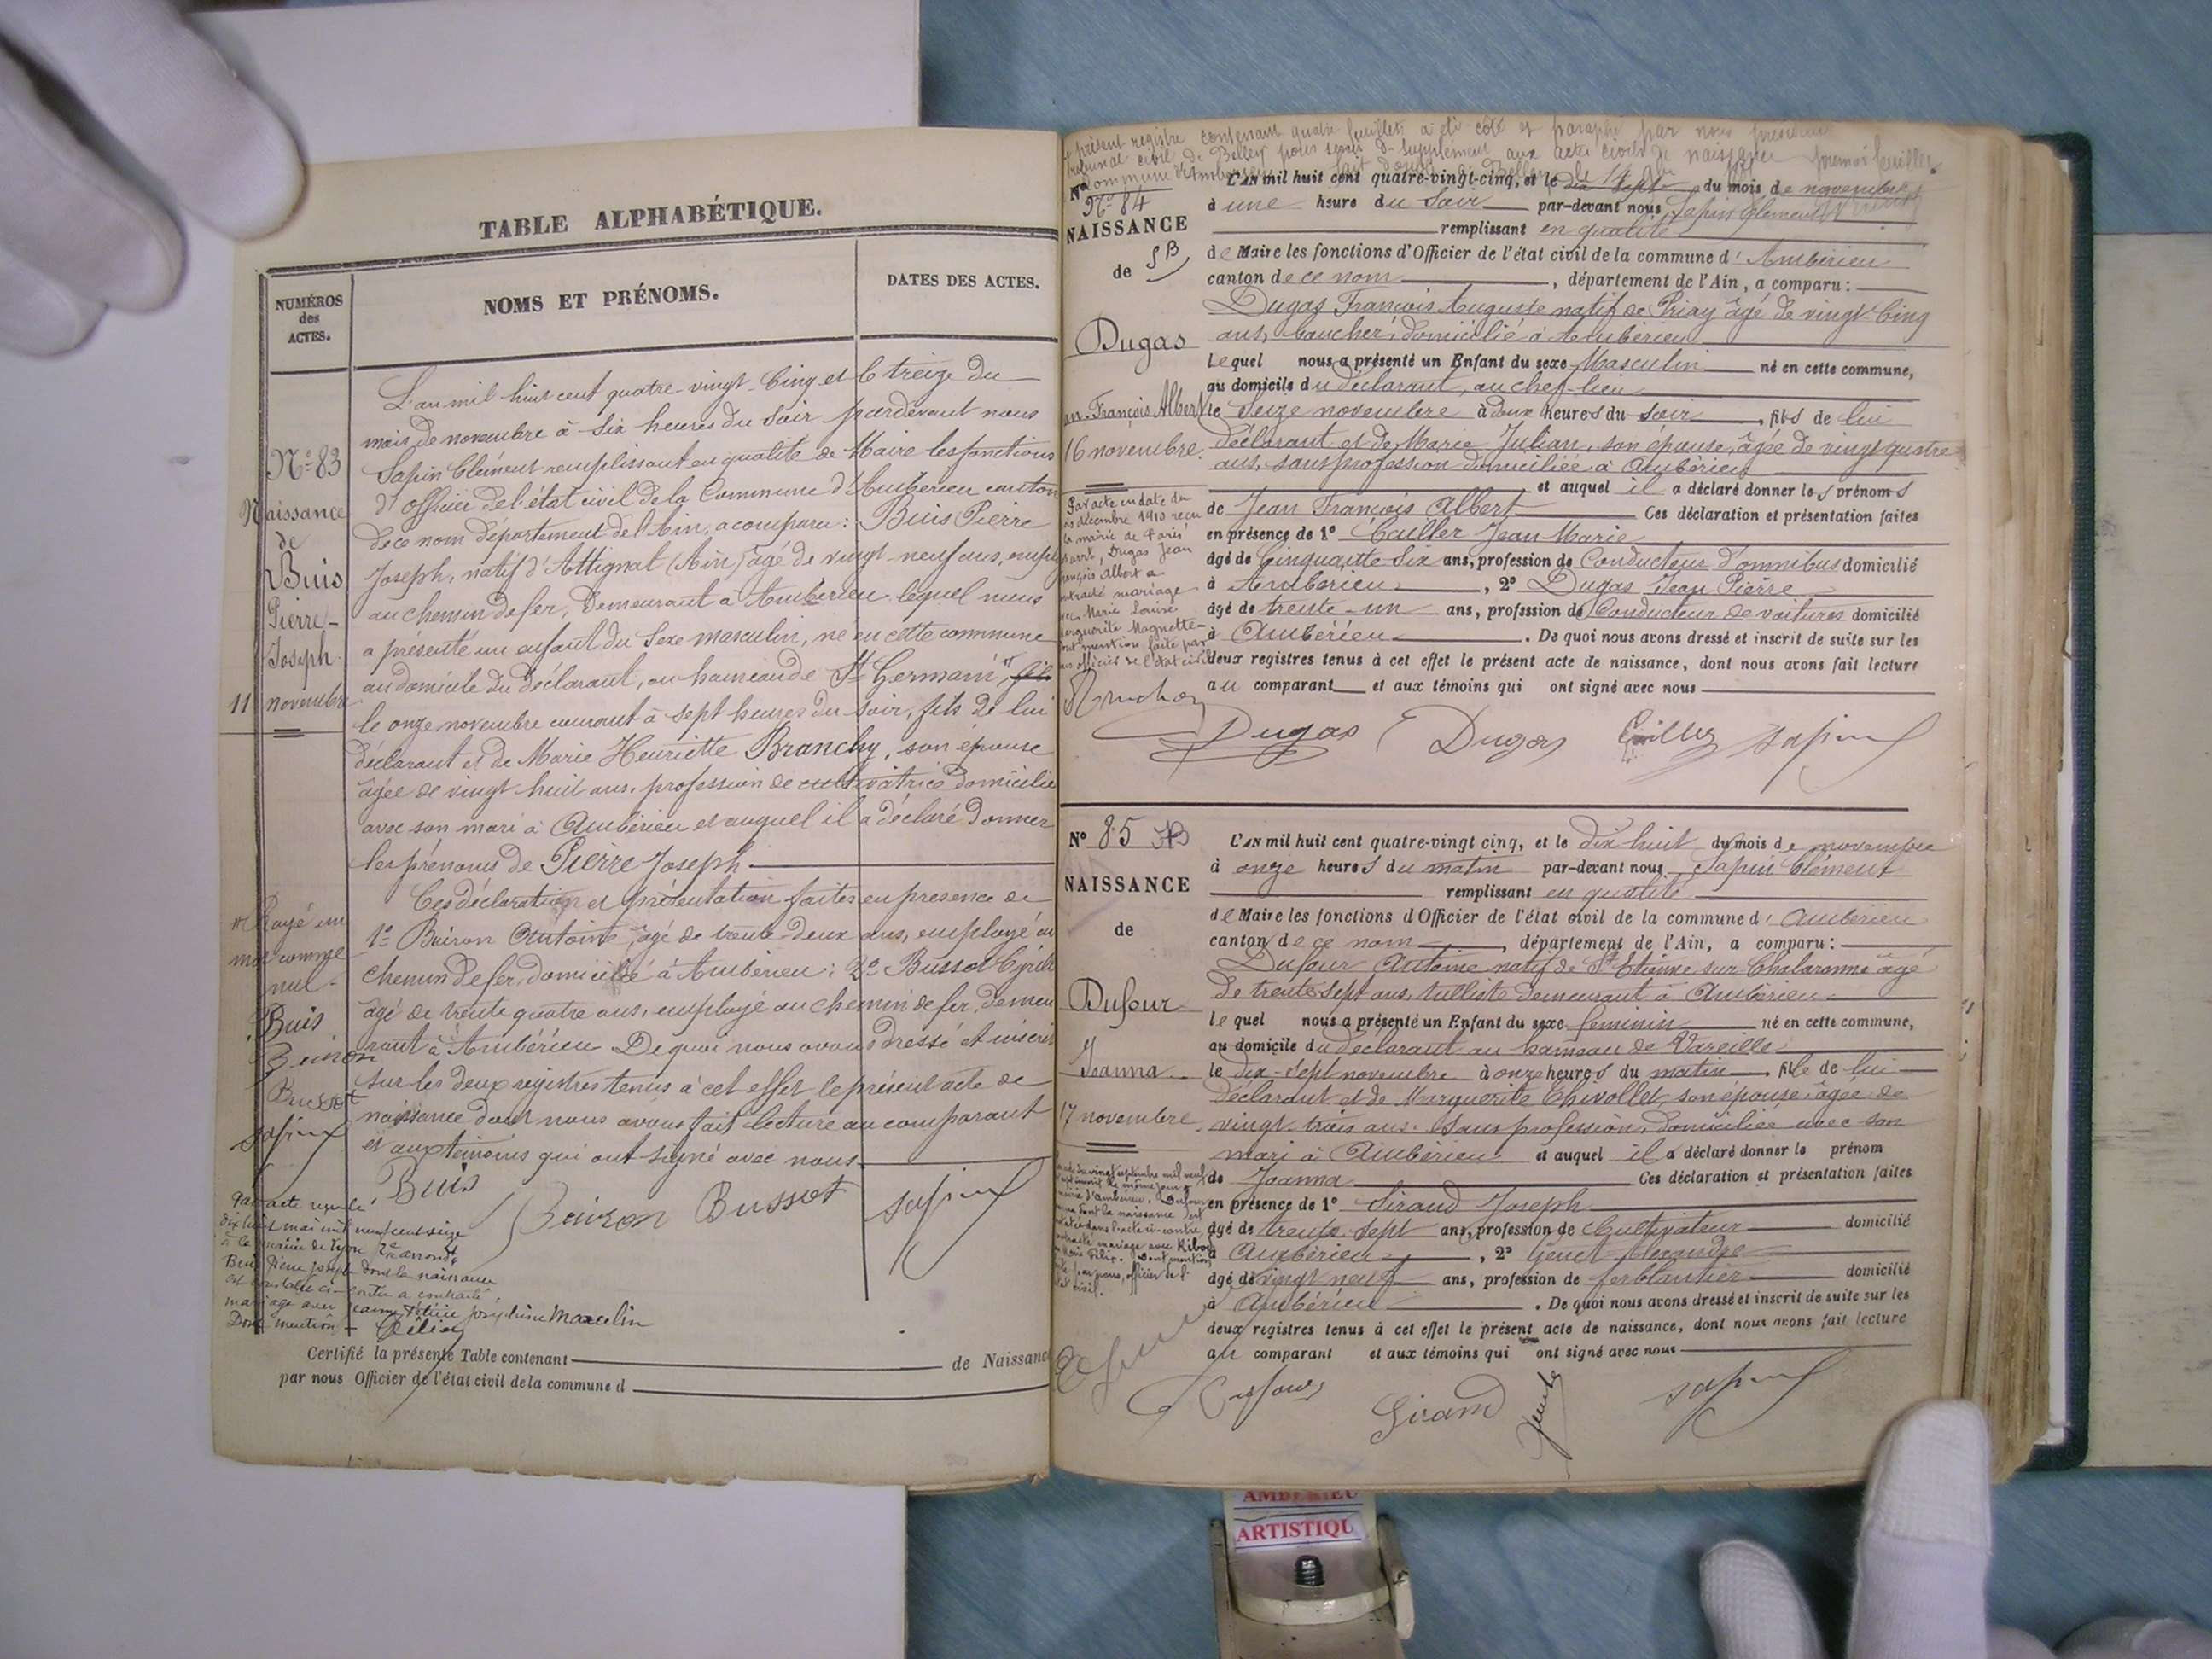 TABLE ALPHABÉTIQUE.
NUMÉROS
des
ACTES.
NOMS ET PRÉNOMS.
DATES DES ACTES.
L'an mil huit cent quatre-vingt-Cinq et le treize du
mois de novembre à six heures du soir pardevant nous
Sapin Clément remplissant en qualité de Maire les fonctions
d'officier de l'état civil de la Commune d'Ambérieu canton
de ce nom département de l'Ain, a comparu : Buis Pierre
Joseph, natif d'Attignat (Ain) âgé de vingt-neuf ans, employé
au chemin de fer, demeurant à Ambérieu lequel nous
a présenté un enfant du sexe masculin, né en cette commune
au domicile du déclarant, au hameau de St Germain,
le onze novembre courant à sept heures du soir, fils de lui
déclarant et de Marie Henriette Branchy, son épouse
âgée de vingt-huit ans, profession de cultivatrice domiciliée
avec son mari à Ambérieu et auquel il a déclaré donner
les prénoms de Pierre Joseph
Ces déclaration et présentation faites en présence de
1º Boiron Antoine, âgé de trente-deux ans, employé au
chemin de fer, domicilié à Ambérieu ; 2º Bussot Cyrille
âgé de trente quatre ans, employé au chemin de fer, demeu
rant à Ambérieu De quoi nous avons dressé et inscrit
sur les deux registres tenus à cet effet le présent acte de
naissance dont nous avons fait lecture au comparant
et aux témoins qui ont signé avec nous
Buis Boiron Bussot Sapin
Nº 83
Naissance
de
Buis
Pierre-
Joseph
11 novembre
Rayé un
mot comme
nul.
Buis
Boiron
Bussot
Sapin
Par acte reçu le
dix huit mai mil neuf cent seize
à la mairie de Lyon 2e arrondt
Buis Pierre Joseph dont la naissance
est constatée ci-contre a contracté
mariage avec Jeanne Joséphine Marcelin
Dont mention
Certifié la présente Table contenant de Naissance
par nous Officier de l'état civil de la commune d
présent registre contenant quatre feuillets a été coté et paraphé par nous président
tribunal civil de Belley pour servir de supplément aux actes civils de naissance premier feuillet
Commune d'Ambérieu
Nº
Nº 84
NAISSANCE
de
Dugas
Jean François Albert
16 novembre.
L'AN mil huit cent quatre-vingt-cinq, et le dix sept du mois de novembre
à une heure du soir par-devant nous Sapin Clément
remplissant en qualité
de Maire les fonctions d'Officier de l'état civil de la commune d'Ambérieu
canton de ce nom, département de l'Ain, a comparu :
Dugas François Auguste natif de Priay âgé de vingt-Cinq
ans, boucher, domicilié à Ambérieu
Lequel nous a présenté un Enfant du sexe Masculin né en cette commune,
au domicile du déclarant, au chef-lieu
le Seize novembre à deux heures du soir, fils de lui
déclarant et de Marie Julian, son épouse, âgée de vingt quatre
ans, sans profession domiciliée à Ambérieu
et auquel il a déclaré donner les prénoms
de Jean François Albert Ces déclaration et présentation faites
en présence de 1º Cailler Jean Marie
âgé de Cinquante Six ans, profession de Conducteur d'omnibus domicilié
à Ambérieu, 2º Dugas Jean Pierre
âgé de trente-un ans, profession de Conducteur de voitures domicilié
à Ambérieu. De quoi nous avons dressé et inscrit de suite sur les
deux registres tenus à cet effet le présent acte de naissance, dont nous avons fait lecture
au comparant et aux témoins qui ont signé avec nous
Dugas Dugas Cailler Sapin
Par acte en date du
décembre 1910 reçu
la mairie de Paris
Dugas Jean
François Albert a
contracté mariage
avec Marie Louise
Marguerite Magnette
dont mention faite par
officier de l'état civil
Nº 85
NAISSANCE
de
Dufour
Joanna
17 novembre.
L'AN mil huit cent quatre-vingt cinq, et le dix huit du mois de novembre
à onze heures du matin par-devant nous, Sapin Clément
remplissant en qualité
de Maire les fonctions d'Officier de l'état civil de la commune d'Ambérieu
canton de ce nom, département de l'Ain, a comparu :
Dufour Antoine natif de St Etienne sur Chalaronne âgé
de trente sept ans, tulliste demeurant à Ambérieu
lequel nous a présenté un Enfant du sexe féminin né en cette commune,
au domicile du déclarant au hameau de Vareille
le dix-sept novembre à onze heures du matin, fille de lui
déclarant et de Marguerite Chivollet, son épouse, âgée de
vingt-trois ans. Sans profession, domiciliée avec son
mari à Ambérieu et auquel il a déclaré donner le prénom
de Joanna Ces déclaration et présentation faites
en présence de 1º Siraud Joseph
âgé de trente sept ans, profession de Cultivateur domicilié
à Ambérieu, 2º Genet Alexandre
âgé de vingt neuf ans, profession de ferblantier domicilié
à Ambérieu. De quoi nous avons dressé et inscrit de suite sur les
deux registres tenus à cet effet le présent acte de naissance, dont nous avons fait lecture
au comparant et aux témoins qui ont signé avec nous
Dufour Siraud Genet Sapin
AMBERIEU
ARTISTIQU